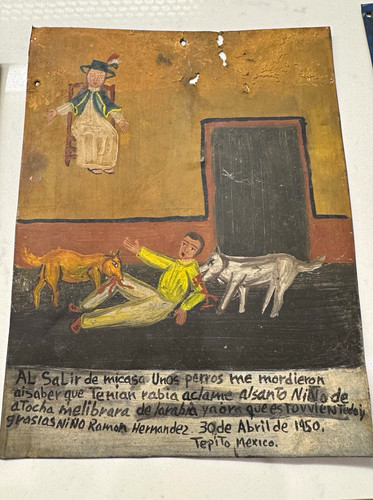 AL SaLir de micasa. Unos perros me mordieron
alsaber que Tenian rabia aclame alsanto NiÑo de
atocha melibrara de larabia yaora que esTOVVIEN Tedoy
grasias NiÑO Ramon Hernandez. 30 de Abril de 1950.
Tepito Mexico.